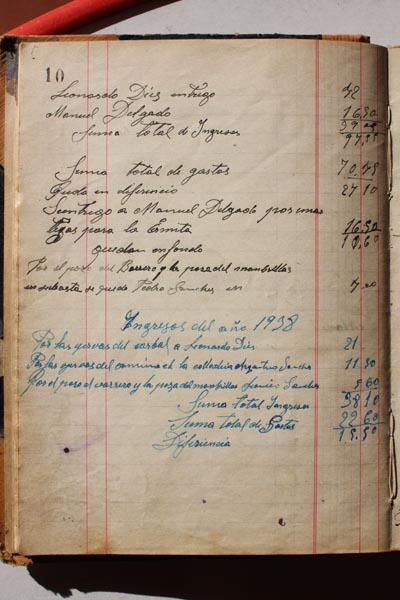 10
Leonardo Dies entrego 42
Manuel Delgado 16,50
Suma total de Ingresos 97,55
Suma total de gastos 70,45
Queda en diferencia 27 10
Se entrego a Manuel Delgado por unas
tejas para la Ermita 16,50
quedan en fondo 10,60
Por el poso del Barrero y la posa del mimbrillos
en subasta se quedo Pedro Sanches en
Ingresos del año 1938
Por las yervas del corral a Leonardo Dies 21
Por las yervas del camino de la Sancho 11 50
Por el poso el varrero y la posa del Sancho 5 60
Suma total Ingresos 38 10
Suma total de Gastos 22 60
Diferiencia 15,50